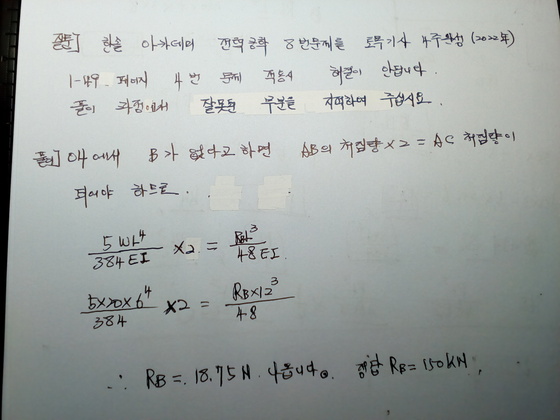 질문] 한솔 아카데미 전혁공학 8번문제를 토목기사 4주완성 (2022年)
1-49 페이지 4번 문제 적용시 해결이 안됩니다.
풀이 과정에서 잘못된 부분을 지적하여 주십시요.
풀이] 아 에서 B가 없다고 하면 AB의 처짐량 × 2 = AC 처짐량이
되어야 하므로
5WL⁴/384EI ×2 = RBL³/48EI
5×20×6⁴/384 ×2 = RB×12³/48
∴ RB = 18.75N 나옵니다. 정답 RB = 150kN,